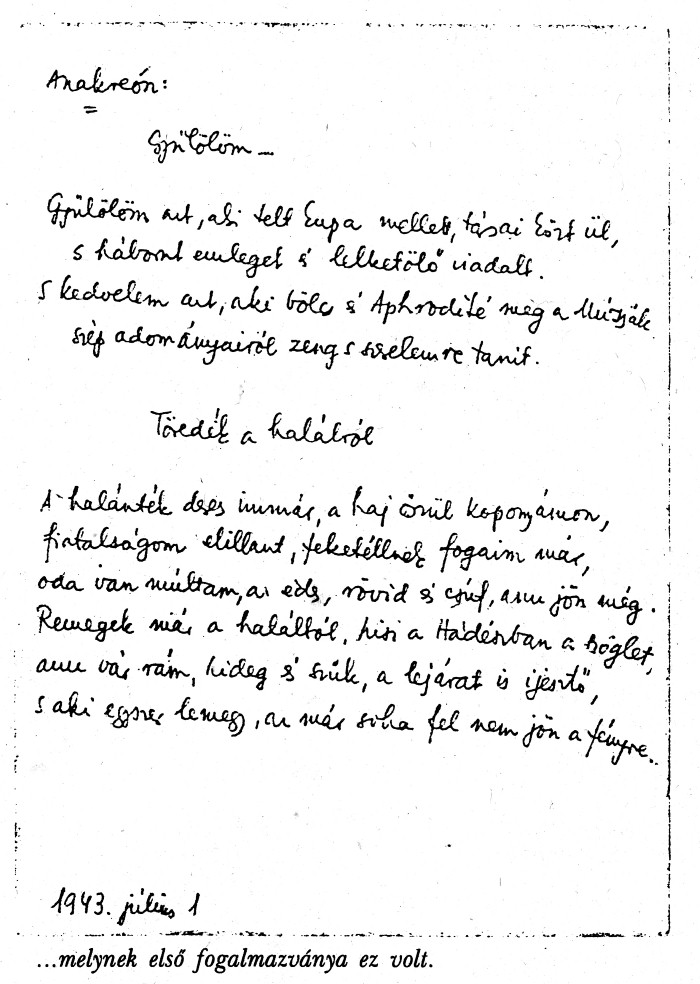 Anakreón:
Gyűlölöm –
Gyűlölöm azt, aki telt kupa mellett, társai közt ül,
s háborut emleget s lelketölő viadalt.
S kedvelem azt, aki bölcs s Aphrodité meg a Múzsák
szép adományairól zeng s szerelemre tanit.
Töredék a halálról
A halánték deres immár, a haj őszül koponyámon,
fiatalságom elillant, feketéllnek fogaim már,
oda van múltam, az édes, rövid s csúf, ami jön még.
Remegek már a haláltól, hisz a Hádészban a szöglet,
ami vár rám, hideg s szűk, a lejárat is ijesztő,
s aki egyszer lemegy, az már soha fel nem jön a fényre..
1943. július 1
...melynek első fogalmazványa ez volt.